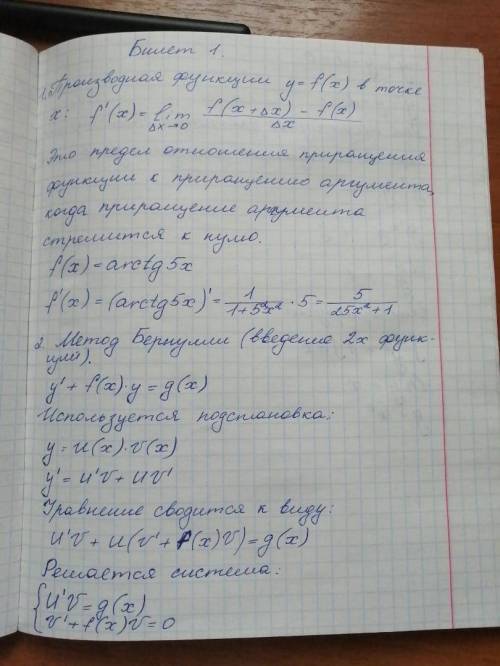 Билет 1.
1. Производная функции y = f(x) в точке
x: f'(x) = lim Δx→0 (f(x+Δx) - f(x))/Δx
Это предел отношения приращения
функции к приращению аргумента,
когда приращение аргумента
стремится к нулю.
f(x) = arctg5x
f'(x) = (arctg5x)' = 1/(1+5²x²) · 5 = 5/(25x²+1)
2. Метод Бернулли (введение 2х функ-
ций).
y' + f(x)·y = g(x)
Используется подстановка:
y = u(x)·v(x)
y' = u'v + uv'
Уравнение сводится к виду:
u'v + u(v' + f(x)v) = g(x)
Решается система:
{u'v = g(x)
v' + f(x)v = 0